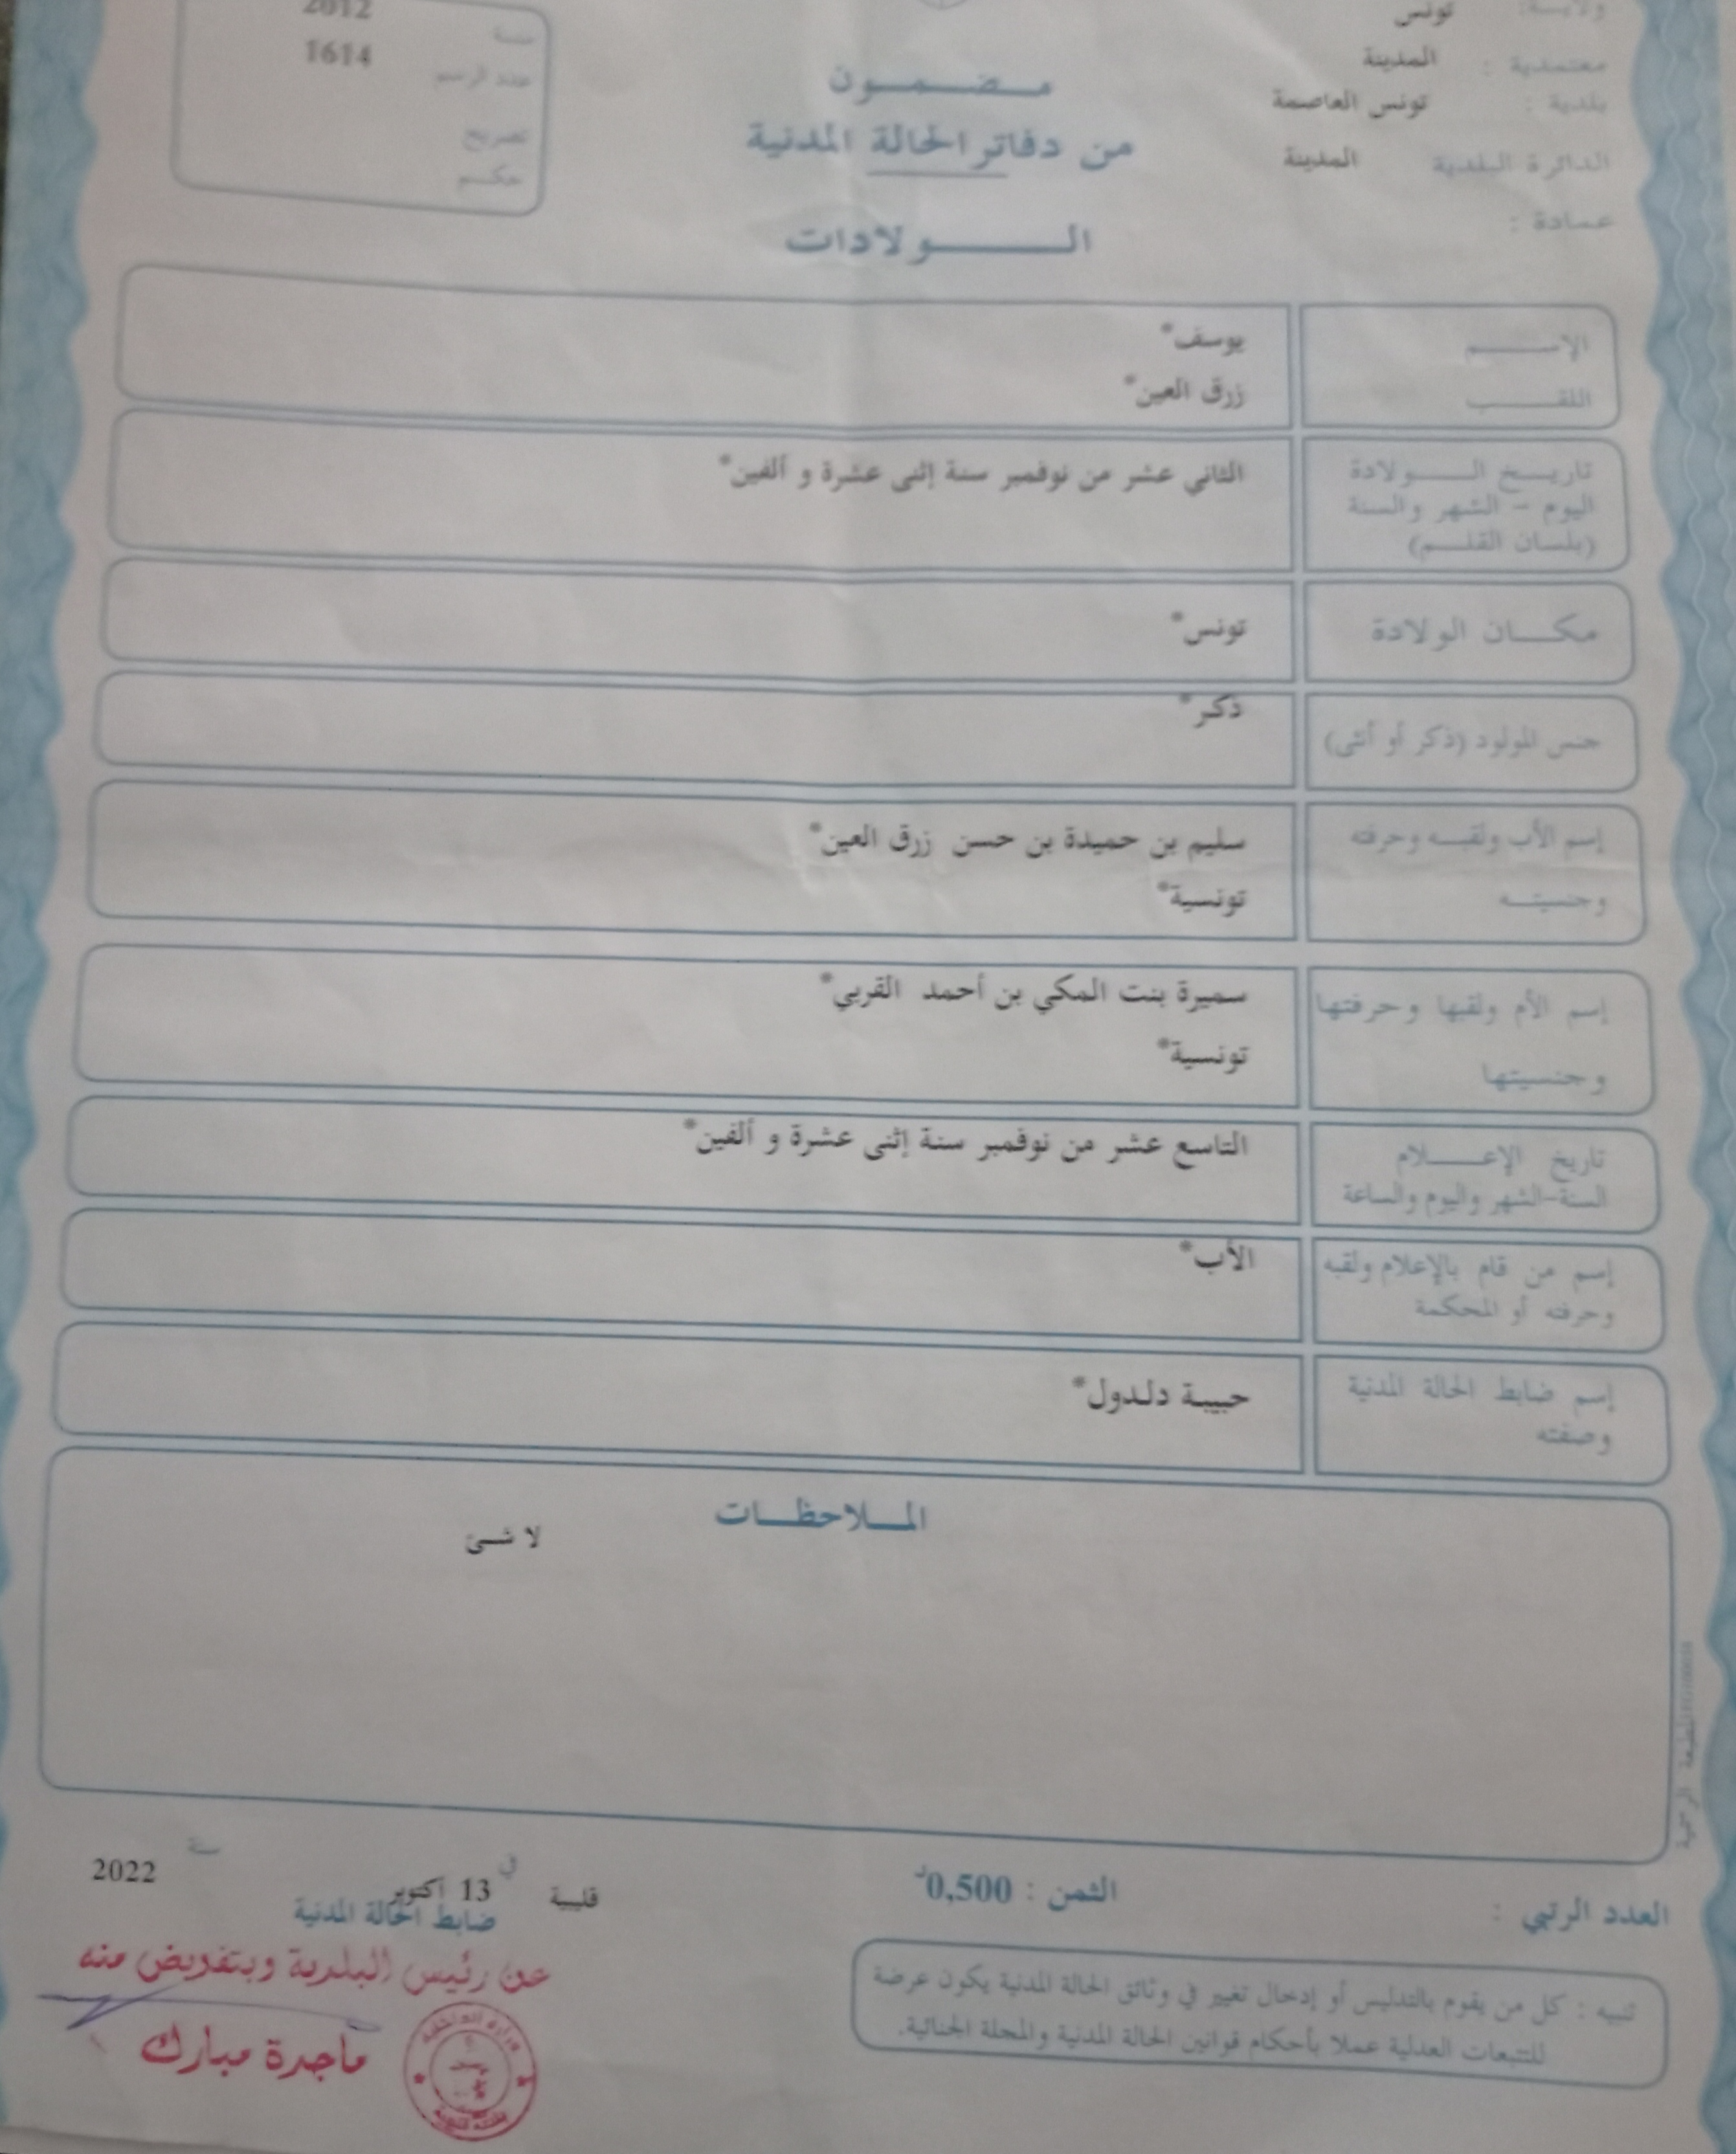 ولاية: تونس
معتمدية : المدينة
بلدية : تونس العاصمة
الدائرة البلدية المدينة
عمادة :
مضمون
من دفاتر الحالة المدنية
الولادات
2012
سنة
1614
عدد الرسم
تصريح
حكم
الإسم يوسف*
اللقب زرق العين*
تاريخ الولادة الثاني عشر من نوفمبر سنة إثنى عشرة و ألفين*
اليوم - الشهر والسنة
(بلسان القلم)
مكان الولادة تونس*
جنس المولود (ذكر أو أنثى) ذكر*
إسم الأب ولقبه وحرفته سليم بن حميدة بن حسن زرق العين*
وجنسيته تونسية*
إسم الأم ولقبها وحرفتها سميرة بنت المكي بن أحمد القربي*
وجنسيتها تونسية*
تاريخ الإعلام التاسع عشر من نوفمبر سنة إثنى عشرة و ألفين*
السنة-الشهر واليوم والساعة
إسم من قام بالإعلام ولقبه الأب*
وحرفته أو المحكمة
إسم ضابط الحالة المدنية حبيبة دلدول*
وصفته
الملاحظات
لا شئ
المطبعة الرسمية
العدد الرتبي :
الثمن : 0,500د
قليبية في 13 أكتوبر سنة 2022
ضابط الحالة المدنية
عن رئيس البلدية وبتفويض منه
ماجدة مبارك
وزارة الداخلية
تنبيه : كل من يقوم بالتدليس أو إدخال تغيير في وثائق الحالة المدنية يكون عرضة
للتتبعات العدلية عملا بأحكام قوانين الحالة المدنية والمجلة الجنائية.